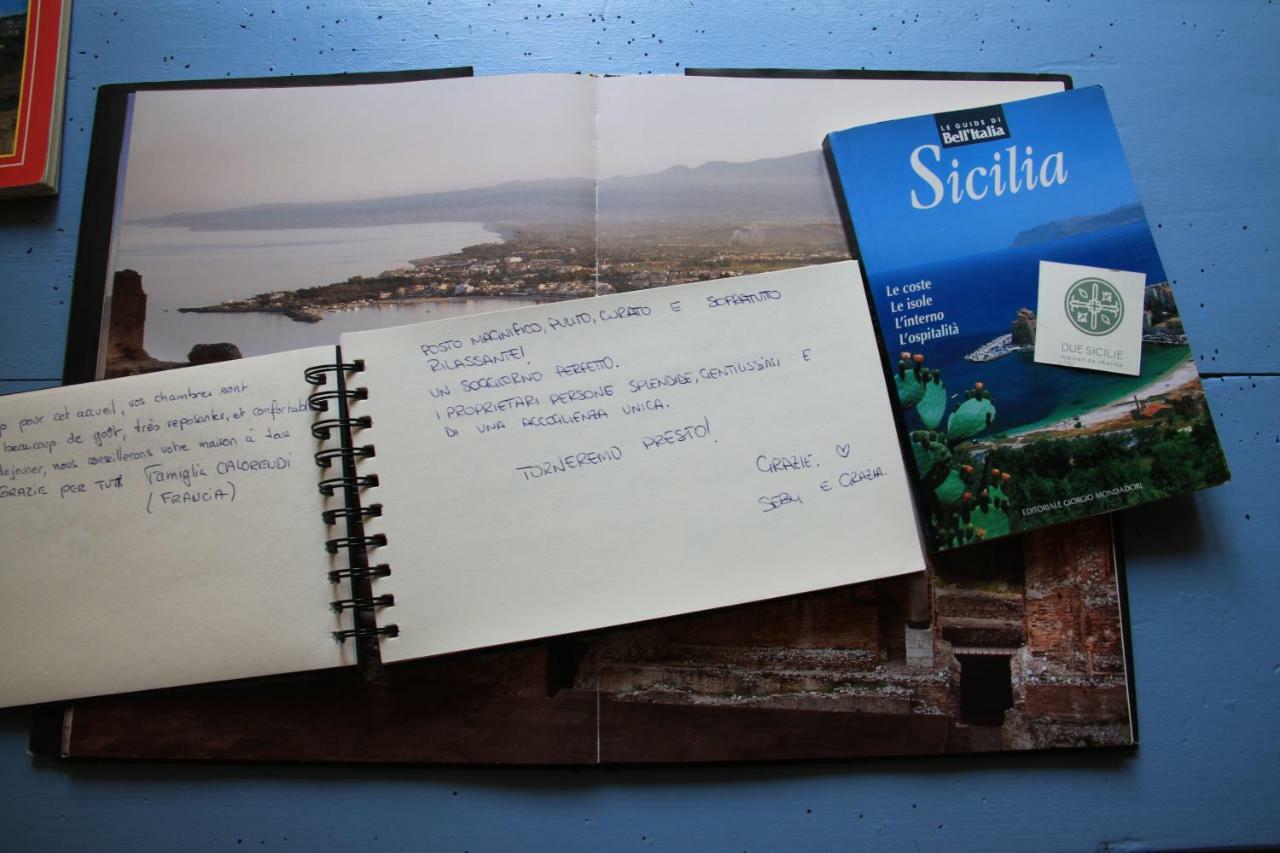 pour cet accueil, vos chambres sont
beaucoup de goût, très reposantes, et confortabl
déjeuner, nous conseillerons votre maison à tous
GRAZIE PER TUTTI Famiglia CALORENDI
(FRANCIA)
POSTO MAGNIFICO, PULITO, CURATO E SOPRATUTO
RILASSANTE!
UN SOGGIORNO PERFETTO.
I PROPRIETARI PERSONE SPLENDIDE, GENTILISSIMI E
DI UNA ACCOGLIENZA UNICA.
TORNEREMO PRESTO!
GRAZIE. ♡
SEBY E GRAZIA.
LE GUIDE DI
Bell'Italia
Sicilia
Le coste
Le isole
L'interno
L'ospitalità
DUE SICILIE
maison de charme
EDITORIALE GIORGIO MONDADORI